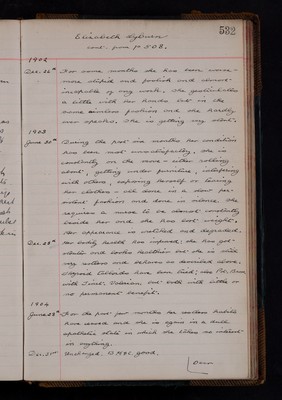 532
Elizabeth
cont. from p. 508.
1902
Dec. 26th For some months she has been worse -
more stupid and foolish and almost
incapable of any work. She gesticulates
a little with her hands but in the
same aimless fashion and she hardly
ever speaks. She is getting very stout.
1903
June 30th During the past six months her condition
has been most unsatisfactory. She is
constantly on the move - either rolling
about, getting under furniture, interfering
with others, exposing herself or tearing
her clothes - all done in a slow per-
sistent fashion and done in silence. She
requires a nurse to be almost constantly
beside her and she has lost weight.
Her appearance is wretched and degraded.
Dec. 28th Her bodily health has improved; she has got
stouter and looks healthier but she is still
very restless and behaves as described above.
Thyroid Tabloids have been tried; also Pot. Brom.
with Tinct. Valerian but both with little or
no permanent benefit.
1904
June 23rd For the past few months her restless habits
have ceased and she is again in a dull
apathetic state in which she takes no interest
in anything.
Dec. 21st Unchanged. B.H. good.
Over